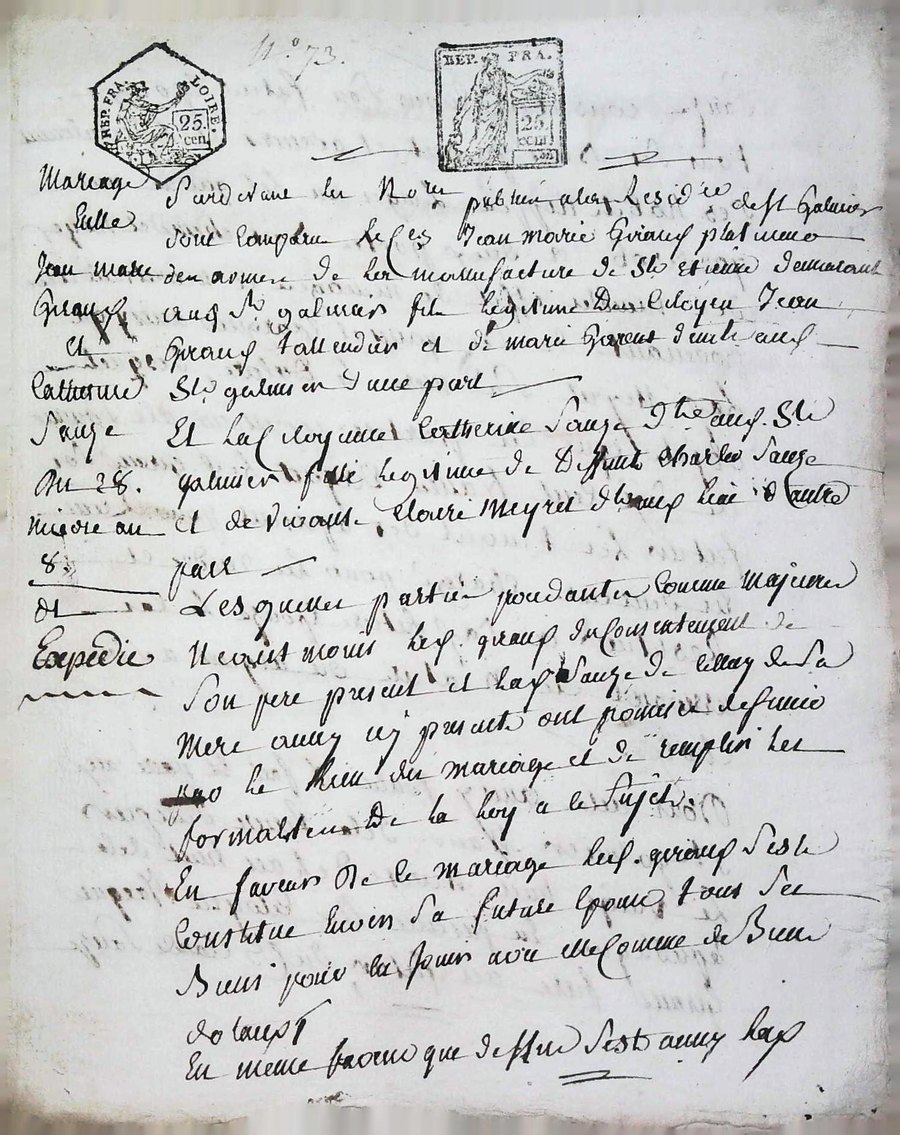 N.o 73.
REP. FRA. LOIRE.
25. cen
REP. FRA.
25 cen
Mariage
Entre
Jean marie
Giraud
et
Catherine
Sauze
Du 28.
nivose an
8.
dt
Expédié
Pardevant les Not publics a la Residce de St Galmier
sont Comparu le Cen Jean marie Giraud platineur
des armes de la manufacture de St Etienne demeurant
aud St galmier fils Legitime du Citoyen Jean
Giraud taillendier et de marie d'mts aud
St galmier d'une part
Et la Citoyenne Catherine Sauze dte aud. St
galmier fille Legitime de Deffunt Charles Sauze
et de vivante Claire Meyret dt aud lieu d'autre
part
Lesquelles parties procedantes Comme majeures
Neant moins led. giraud du Consentement de
Son pere present et lad Sauze de Celluy de Sa
Mere aussy icy presente ont promis de s'unir
par le Lien du mariage et de remplir les
formalités De la Loy a ce Sujet.
En faveur De ce mariage led. giraud s'est
Constitué Envers Sa future Epouse tous Ses
Biens pour en Jouir avec elle Comme de Biens
dotaux
En meme que dessus s'est aussy lad